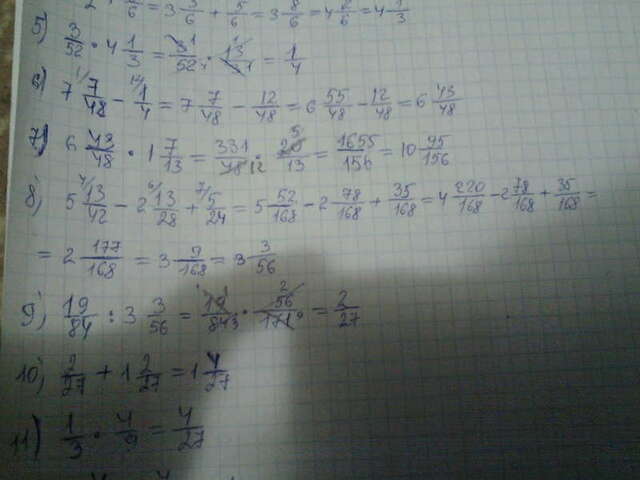 /6 = 3 3/6 + 5/6 = 3 8/6 = 4 2/6 = 4 1/3
5) 3/52 · 4 1/3 = 3/52 · 13/3 = 1/4
6) 7 7/48 − 1/4 = 7 7/48 − 12/48 = 6 55/48 − 12/48 = 6 43/48
7) 6 43/48 · 1 7/13 = 331/48 · 20/13 = 1655/156 = 10 95/156
8) 5 13/42 − 2 13/28 + 5/24 = 5 52/168 − 2 78/168 + 35/168 = 4 220/168 − 2 78/168 + 35/168 =
= 2 177/168 = 3 9/168 = 3 3/56
9) 19/84 : 3 3/56 = 19/84 · 56/171 = 2/27
10) 2/27 + 1 2/27 = 1 4/27
11) 1/3 · 4/9 = 4/27